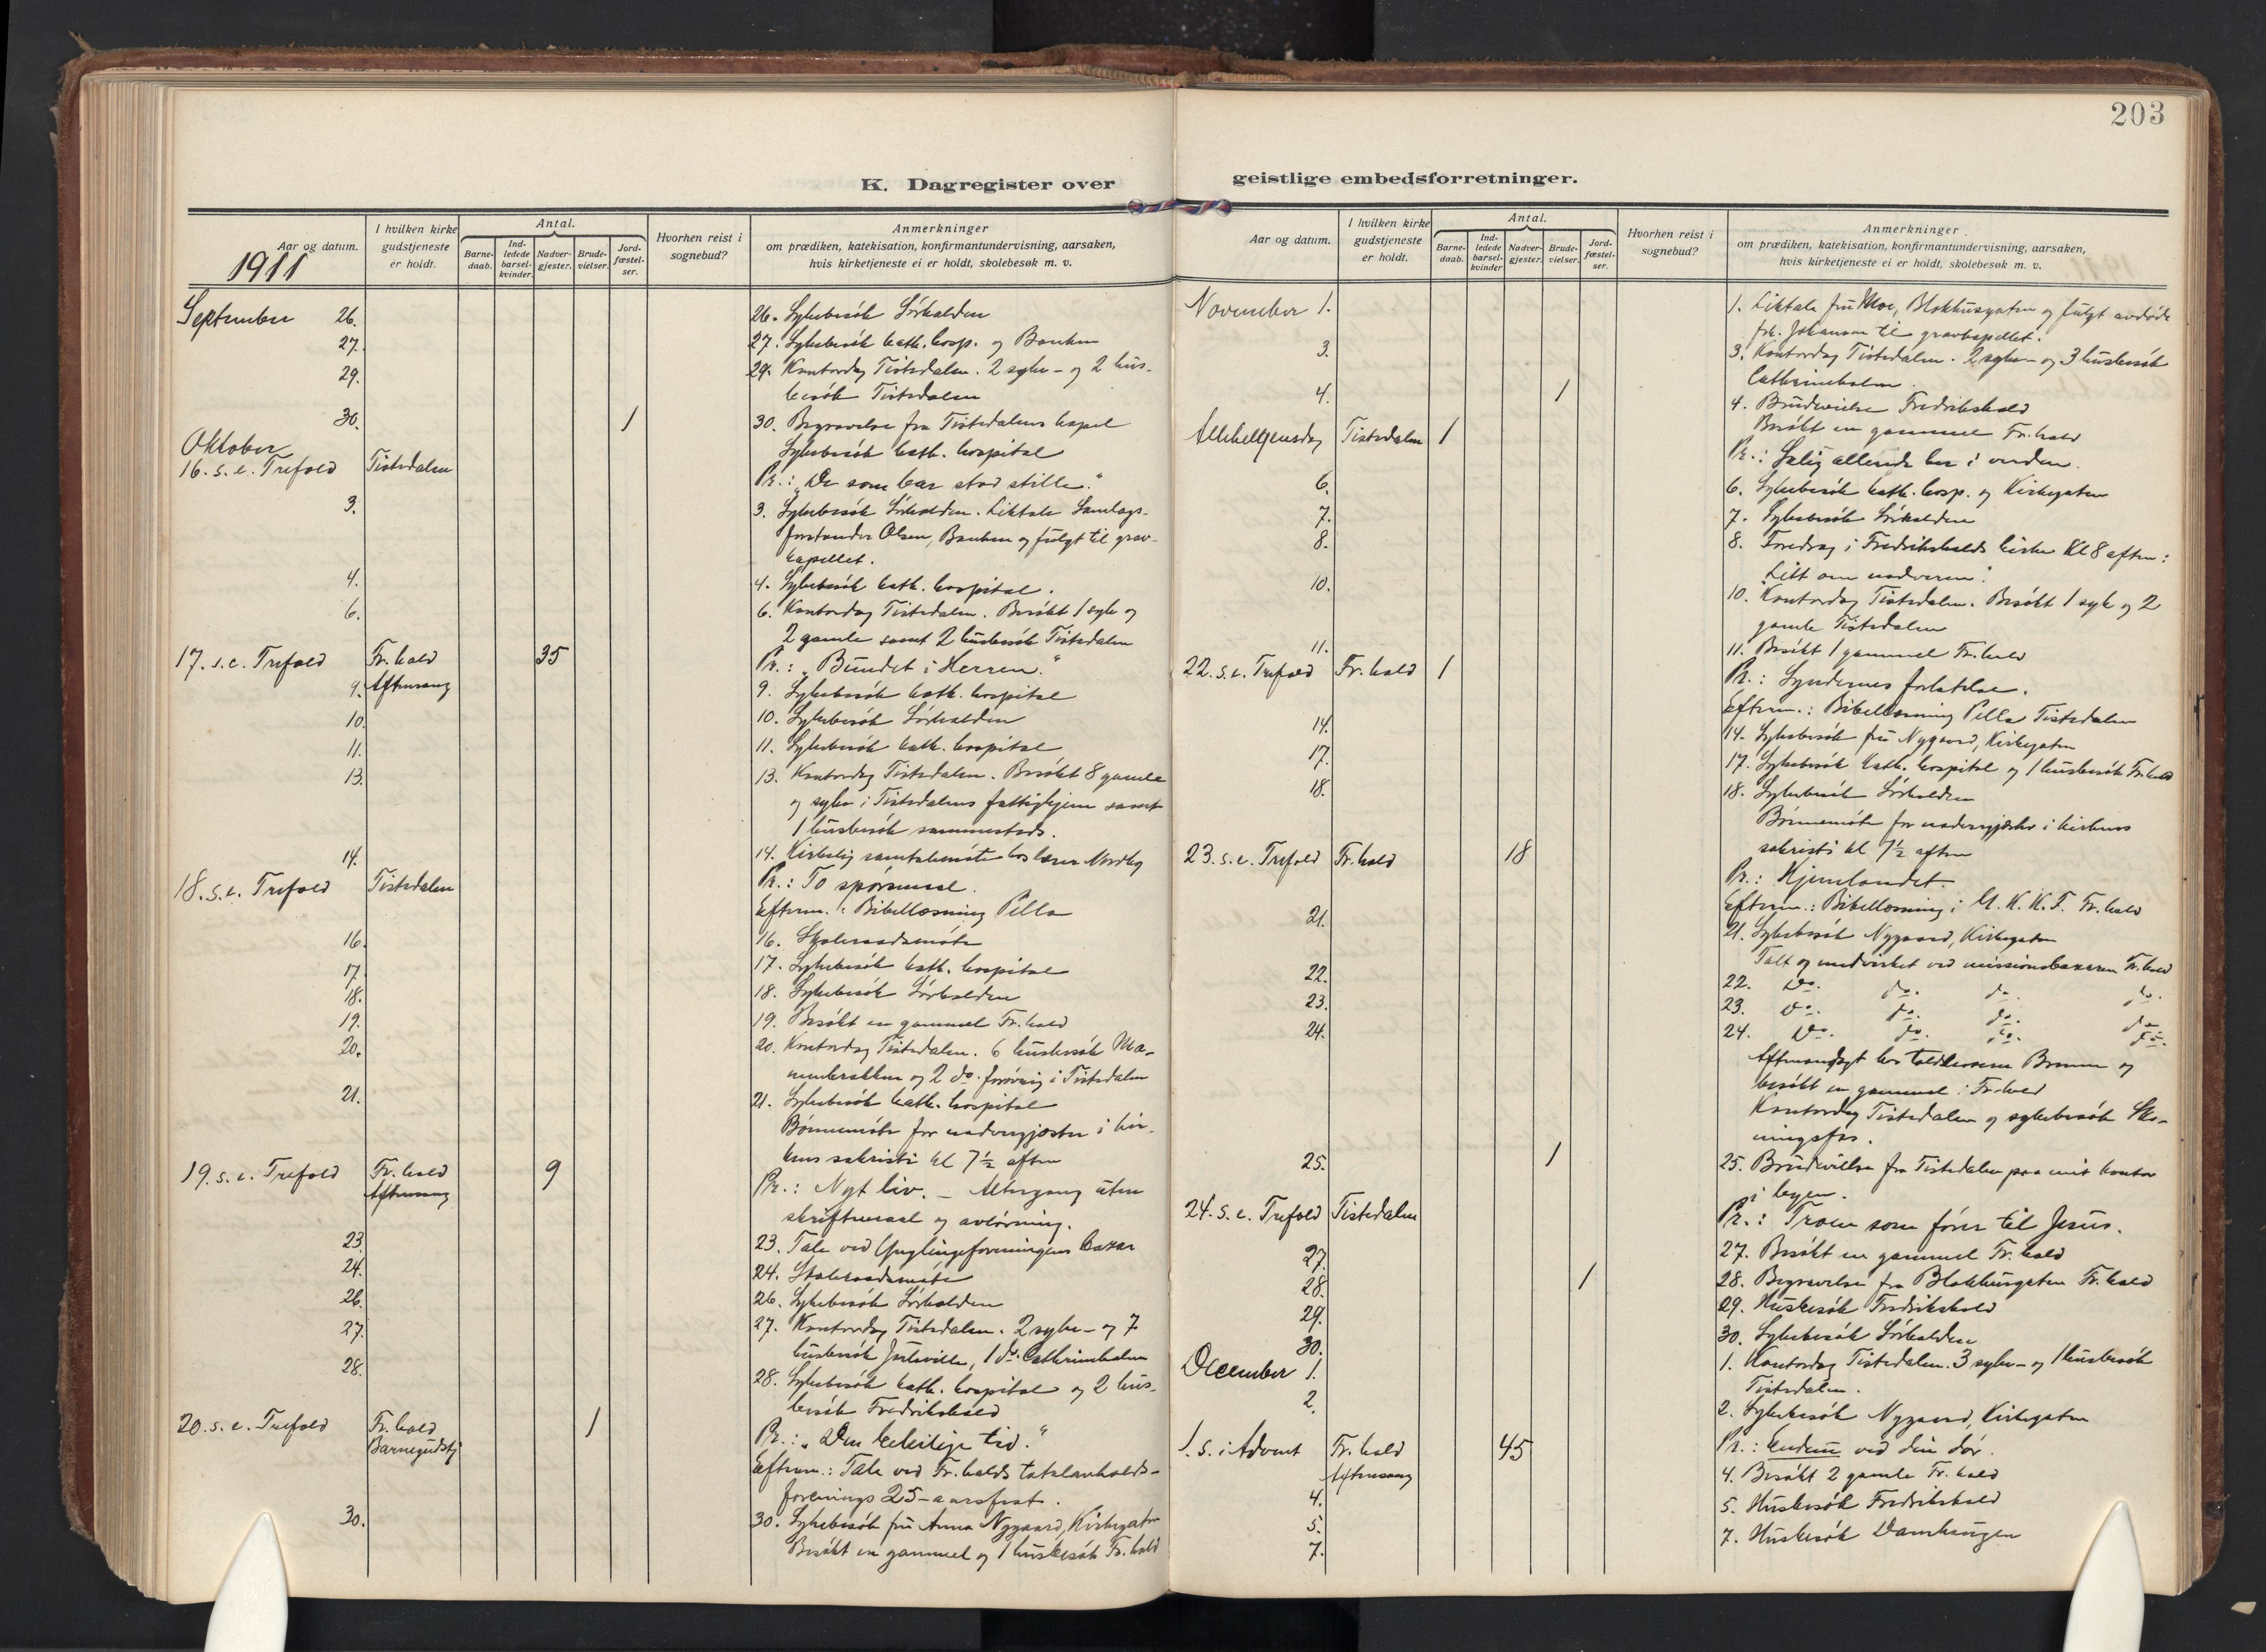 203
K. Dagregister over geistlige embedsforretninger.
Aar og datum.
1911
I hvilken kirke gudstjeneste er holdt.
Antal.
Barne-daab.
Ind-ledede barsel-kvinder.
Nadver-gjester.
Brude-vielser.
Jord-fæstel-ser.
Hvorhen reist i sognebud?
Anmerkninger
om prædiken, katekisation, konfirmantundervisning, aarsaken,
hvis kirketjeneste ei er holdt, skolebesøk m. v.
September 26. 26. Sykebesøk Sørhalden
27. 27. Sykebesøk kath. hosp. og Banken
29. 29. Kontordag Tistedalen. 2 syke- og 2 hus-
besøk Tistedalen
30. 1 30. Begravelse fra Tistedalens kapel
Oktober Sykebesøk kath. hospital
16. s. e. Trefold Tistedalen Pr.: „De som bar stod stille."
3. 3. Sykebesøk Sørhalden. Liktale Samlags-
forstander Olsen, Banken og fulgt til grav-
kapellet.
4. 4. Sykebesøk kath. hospital.
6. 6. Kontordag Tistedalen. Besøkt 1 syk og
2 gamle samt 2 husbesøk Tistedalen
17. s. e. Trefold Fr.hald 35 Pr.: „Bundet i Herren."
9. Aftensang 9. Sykebesøk kath. hospital
10. 10. Sykebesøk Sørhalden
11. 11. Sykebesøk kath. hospital
13. 13. Kontordag Tistedalen. Besøkt 8 gamle
og syke i Tistedalens fattighjem samt
1 husbesøk sammesteds.
14. 14. Kirkelig samtalemøte hos lærer Nordby
18. s. e. Trefold Tistedalen Pr.: To spørsmaal.
Efterm.: Bibellæsning Pella
16. 16. Skoleraadsmøte
17. 17. Sykebesøk kath. hospital
18. 18. Sykebesøk Sørhalden
19. 19. Besøkt en gammel Fr.hald
20. 20. Kontordag Tistedalen. 6 husbesøk
og 2 do. forøvrig i Tistedalen
21. 21. Sykebesøk kath. hospital
Bønnemøte for nadvergjæster i kir-
kens sakristi kl 7½ aften
19. s. e. Trefold Fr.hald 9 Pr.: Nyt liv. – Altergang uten
Aftensang skriftemaal og avløsning.
23. 23. Tale ved Ynglingeforeningens bazar
24. 24. Skoleraadsmøte
26. 26. Sykebesøk Sørhalden
27. 27. Kontordag Tistedalen. 2 syke- og 7
husbesøk 1 do. Cathrineholm
28. 28. Sykebesøk kath. hospital og 2 hus-
besøk Fredrikshald
20. s. e. Trefold Fr.hald 1 Pr.: „Den beleilige tid."
Barnegudstj. Efterm.: Tale ved Fr.halds totalavholds-
forenings 25-aarsfest.
30. 30. Sykebesøk fru Anna Nygaard, Kirkegaten
Besøkt en gammel og 1 husbesøk Fr.hald
Aar og datum.
I hvilken kirke gudstjeneste er holdt.
Antal.
Barne-daab.
Ind-ledede barsel-kvinder
Nadver-gjester.
Brude-vielser.
Jord-fæstel-ser.
Hvorhen reist i sognebud?
Anmerkninger
om prædiken, katekisation, konfirmantundervisning, aarsaken,
hvis kirketjeneste ei er holdt, skolebesøk m. v.
November 1. 1. Liktale fru Moe, Blokhusgaten og fulgt avdøde
frk. Johansen til gravkapellet.
3. 3. Kontordag Tistedalen. 2 syke- og 3 husbesøk
Cathrineholm.
4. 1 4. Brudevielse Fredrikshald
Besøkt en gammel Fr.hald
Allehelgensdag Tistedalen 1 Pr.: Salig allerede her i verden.
6. 6. Sykebesøk kath. hosp. og Kirkegaten
7. 7. Sykebesøk Sørhalden
8. 8. Foredrag i Fredrikshalds kirke Kl 8 aften:
„Litt om nadveren".
10. 10. Kontordag Tistedalen. Besøkt 1 syk og 2
gamle Tistedalen
11. 11. Besøkt 1 gammel Fr.hald
22. s. e. Trefold Fr.hald 1 Pr.: Syndernes forlatelse.
Efterm.: Bibellæsning Pella Tistedalen
14. 14. Sykebesøk fru Nygaard, Kirkegaten
17. 17. Sykebesøk kath. hospital og 1 husbesøk Fr.hald
18. 18. Sykebesøk Sørhalden
Bønnemøte for nadvergjæster i kirkens
sakristi kl 7½ aften
23. s. e. Trefold Fr.hald 18 Pr.: Hjemlandet.
Efterm.: Bibellæsning i U. K. K. F. Fr.hald
21. 21. Sykebesøk Nygaard, Kirkegaten
Talt og medvirket ved missionsbazaren Fr.hald
22. 22. Do. do. do. do.
23. 23. Do. do. do. do.
24. 24. Do. do. do. do.
hos og
besøkt en gammel i Fr.hald
Kontordag Tistedalen og sykebesøk
25. 1 25. Brudevielse fra Tistedalen paa mit kontor
i byen.
24. s. e. Trefold Tistedalen Pr.: Troen som fører til Jesus.
27. 27. Besøkt en gammel Fr.hald
28. 1 28. Begravelse fra Blokhusgaten Fr.hald
29. 29. Husbesøk Fredrikshald
30. 30. Sykebesøk Sørhalden
December 1. 1. Kontordag Tistedalen. 3 syke- og 1 husbesøk
Tistedalen.
2. 2. Sykebesøk Nygaard, Kirkegaten
1. s. i Advent Fr.hald 45 Pr.: Endnu ved din dør.
Aftensang
4. 4. Besøkt 2 gamle Fr.hald
5. 5. Husbesøk Fredrikshald
7. 7. Husbesøk Damhaugen